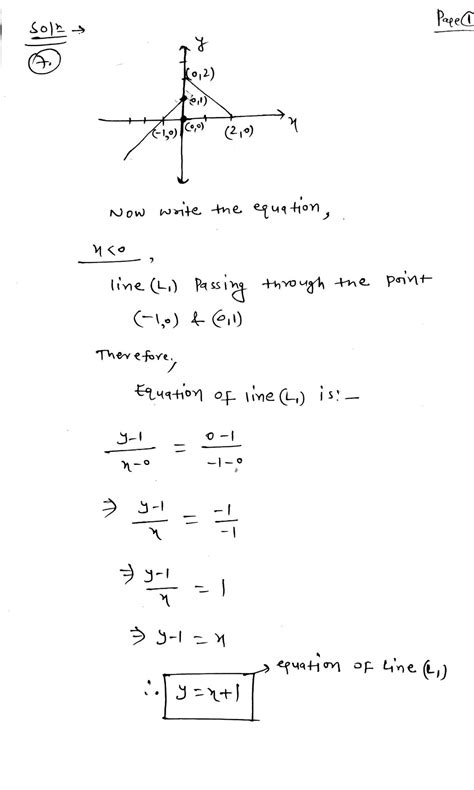 Page ①
Solⁿ →
7.
y
(0,2)
(0,1)
(-1,0) (0,0) (2,0) x
Now write the equation,
x<0,
line (L₁) Passing through the point
(-1,0) & (0,1)
Therefore,
Equation of line (L₁) is:-
y-1/x-0 = 0-1/-1-0
⇒ y-1/x = -1/-1
⇒ y-1/x = 1
⇒ y-1 = x
∴ y = x+1 → equation of line (L₁)